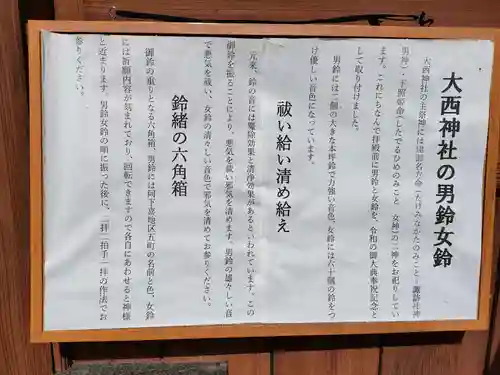 大西神社の男鈴女鈴
大西神社の主祭神には建御名方命(たけみなかたのみこと・諏訪社神
男神)・下照姫命(したでるひめのみこと 女神)の二神をお祀りしてい
ます。これにちなんで拝殿前に男鈴と女鈴を、令和の御大典奉祝記念と
して取り付けました。
男鈴には一個の大きな本坪鈴で力強い音色、女鈴には六十個の鈴をつ
け優しい音色になっています。
祓い給い清め給え
元来、鈴の音には魔除効果と清浄効果があるといわれています。この
御鈴を振ることにより、悪気を祓い邪気を清めます。男鈴の雄々しい音
で悪気を祓い、女鈴の清々しい音色で邪気を清めてお参りください。
鈴緒の六角箱
御鈴の重りとなる六角箱、男鈴には向下宮地区五町の名前と色、女鈴
には祈願内容が刻まれており、回転できますので各自にあわせると神様
と近まります。男鈴女鈴の順に振った後に、二拝二拍手一拝の作法でお
参りください。